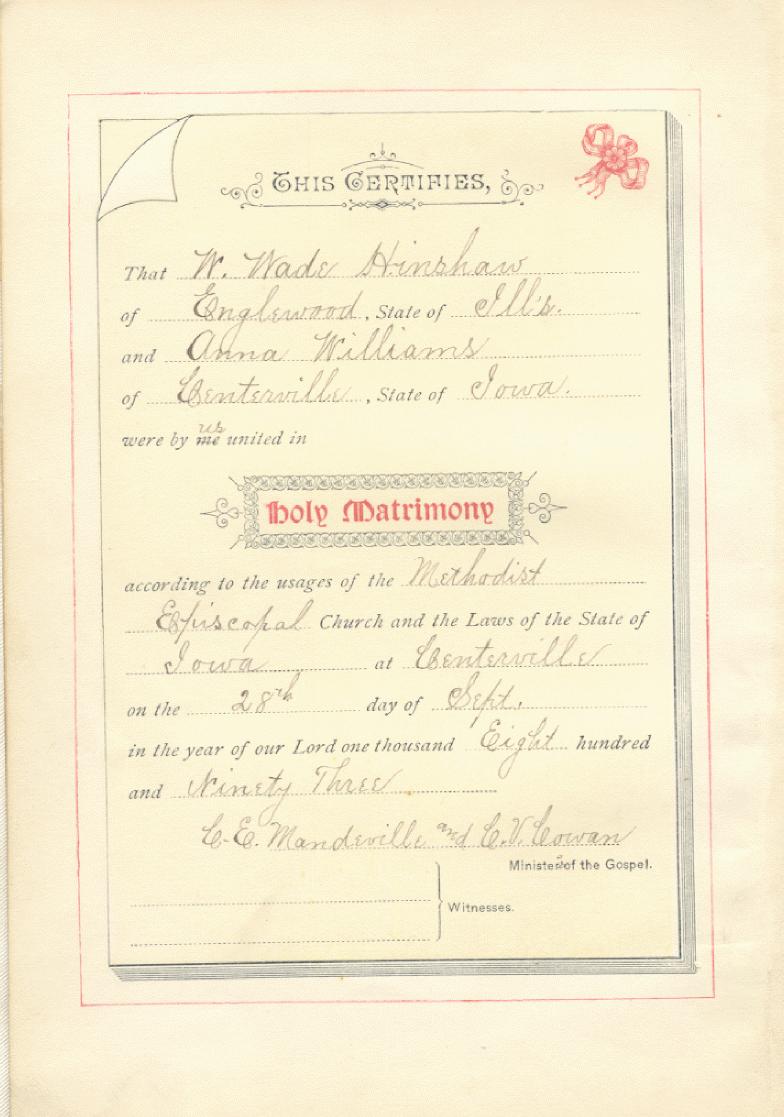 THIS CERTIFIES,
That W. Wade Hinshaw
of Englewood, State of Ill's.
and Anna Williams
of Centerville, State of Iowa.
us
were by me united in
Holy Matrimony
according to the usages of the Methodist
Episcopal Church and the Laws of the State of
Iowa at Centerville
on the 28th day of Sept.
in the year of our Lord one thousand Eight hundred
and Ninety Three
C. E. Mandeville and C. V. Cowan
Ministers of the Gospel.
Witnesses.